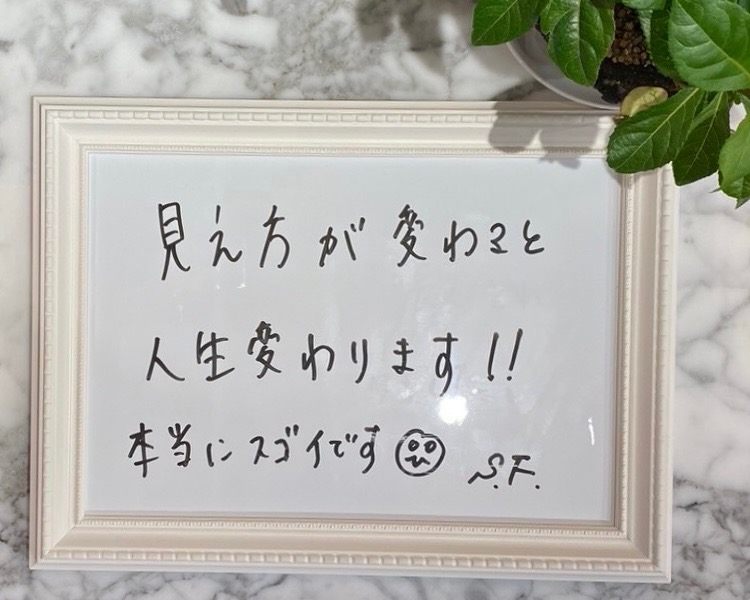 見え方が変わると
人生変わります!!
本当にスゴイです S.F.